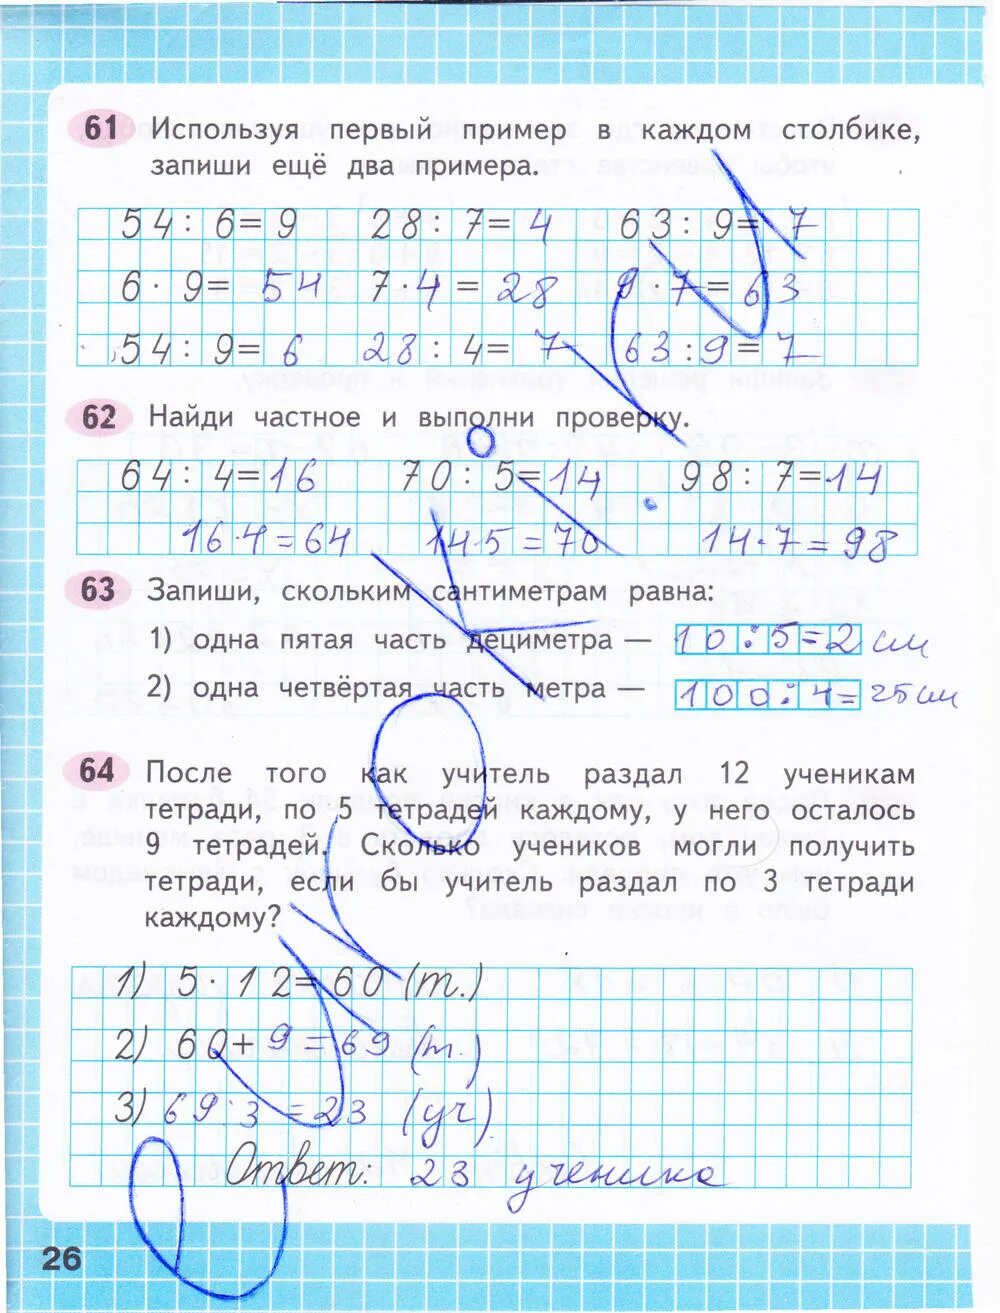 61 Используя первый пример в каждом столбике,
запиши ещё два примера.
54 : 6 = 9 28 : 7 = 4 63 : 9 = 7
6 · 9 = 54 7 · 4 = 28 9 · 7 = 63
54 : 9 = 6 28 : 4 = 7 63 : 9 = 7
62 Найди частное и выполни проверку.
64 : 4 = 16 70 : 5 = 14 98 : 7 = 14
16 · 4 = 64 14 · 5 = 70 14 · 7 = 98
63 Запиши, скольким сантиметрам равна:
1) одна пятая часть дециметра — 10 : 5 = 2 см
2) одна четвёртая часть метра — 100 : 4 = 25 см
64 После того как учитель раздал 12 ученикам
тетради, по 5 етрадей каждому, у него осталось
9 тетрадей. Сколько учеников могли получить
тетради, если бы учитель раздал по 3 тетради
каждому?
1) 5 · 12 = 60 (т.)
2) 60 + 9 = 69 (т.)
3) 69 : 3 = 23 (уч)
Ответ: 23 ученика
26